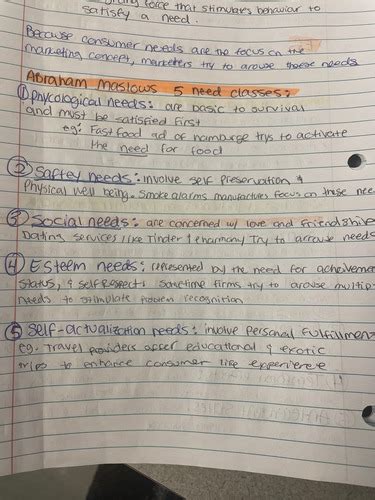 force that stimulates behavior to
satisfy a need.
Because consumer needs are the focus on the
marketing concept, marketers try to arouse these needs
Abraham Maslows 5 need classes:
① Phycological needs: are basic to survival
and must be satisfied first
eg: Fast food ad of hamburge trys to activate
the need for food
② Saftey needs: involve self preservation &
Physical well being. Smoke alarms manufactures focus on these nee
③ Social needs: are concerned w/ love and friendship
Dating services like Tinder & eharmony Try to arouse needs
④ Esteem needs: represented by the need for acheivemen
status, & self respect. Sometime firms try to arouse multip
needs to stimulate recognition
⑤ Self-actualization needs: involve personal fulfillment
eg. Travel providers offer educational & exotic
trips to enhance consumer life experience